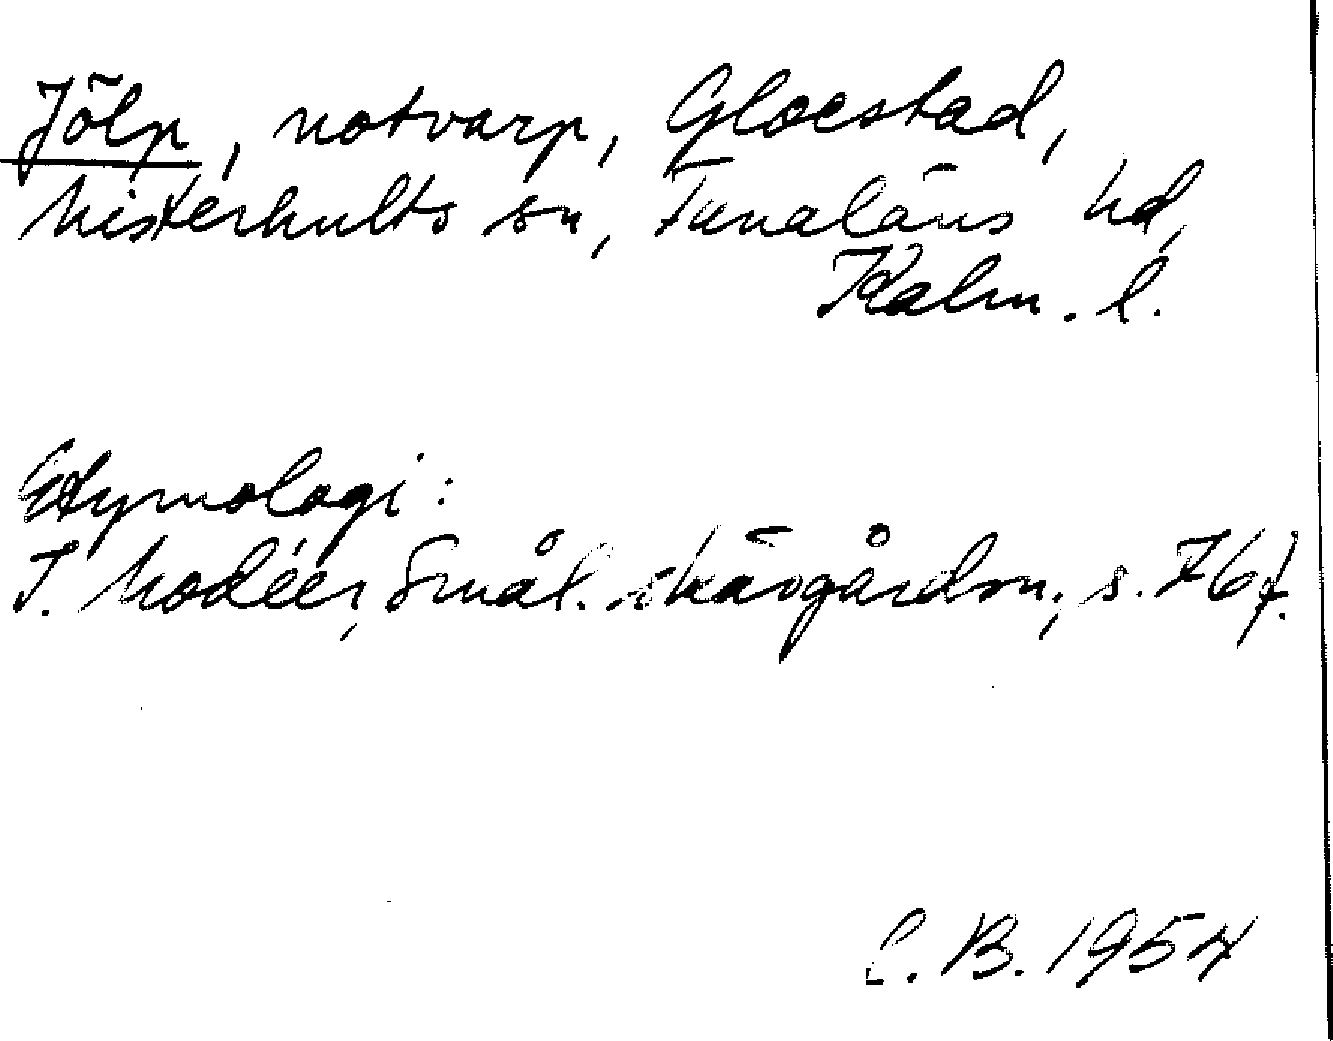 Jölp, notvarp, Gloestad,
Misterhults sn, Tunaläns hd,
Kalm. l.
Etymologi:
I. Modéer, Smål. skärgårdsn., s. 76f.
C. B. 1954